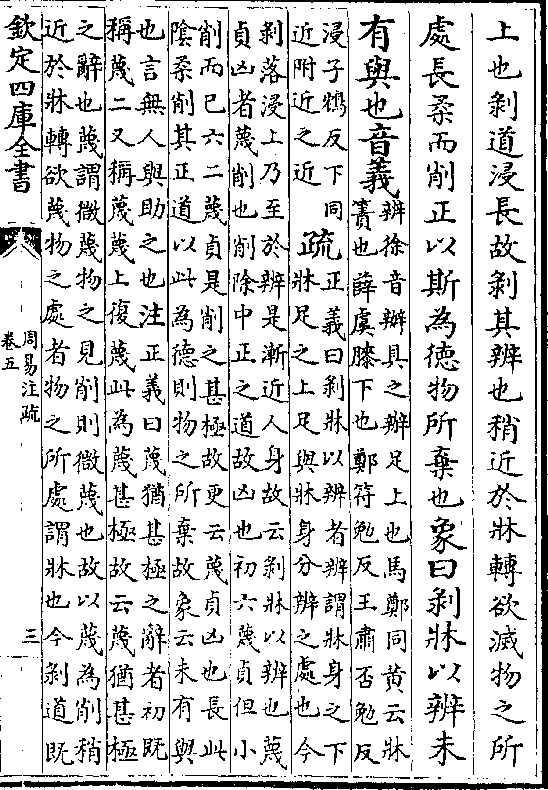 上也剝道浸長故剝其辨也稍近於牀轉欲滅物之所
處長柔而削正以斯為德物所棄也象曰剝牀以辨未
有與也音義辨徐音辦具之辦足上也馬鄭同黄云牀
簀也薛虞膝下也鄭符勉反王肅否勉反
浸子鴆反下同
近附近之近
疏正義曰剝牀以辨者辨謂牀身之下
牀足之上足與牀身分辨之處也今
剝落浸上乃至於辨是漸近人身故云剝牀以辨也蔑
貞凶者蔑削也削除中正之道故凶也初六蔑貞但小
削而已六二蔑貞是削之甚極故更云蔑貞凶也長此
陰柔削其正道以此為德則物之所棄故象云未有與
也言無人與助之也注正義曰蔑猶甚極之辭者初既
稱蔑二又稱蔑蔑上復蔑此為蔑甚極故云蔑猶甚極
之辭也蔑謂微蔑物之見削則微蔑也故以蔑為削稍
近於牀轉欲蔑物之處者物之所處謂牀也今剝道既
欽定四庫全書
周易注疏
卷五
三